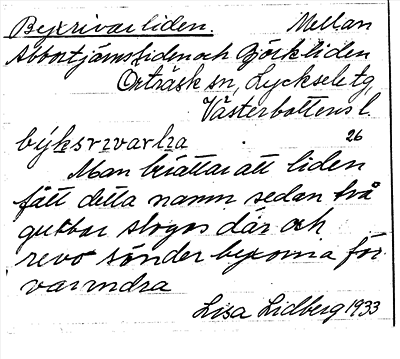 Byxrivarliden. Mellan
Abbortjärnsliden och Björkliden
Örträsk sn, Lycksele tg,
Västerbottens l.
býksrivarlia 26
Man berättar att liden
fått detta namn sedan två
gubbar slogos där och
revo sönder byxorna för
varandra
Lisa Lidberg 1933